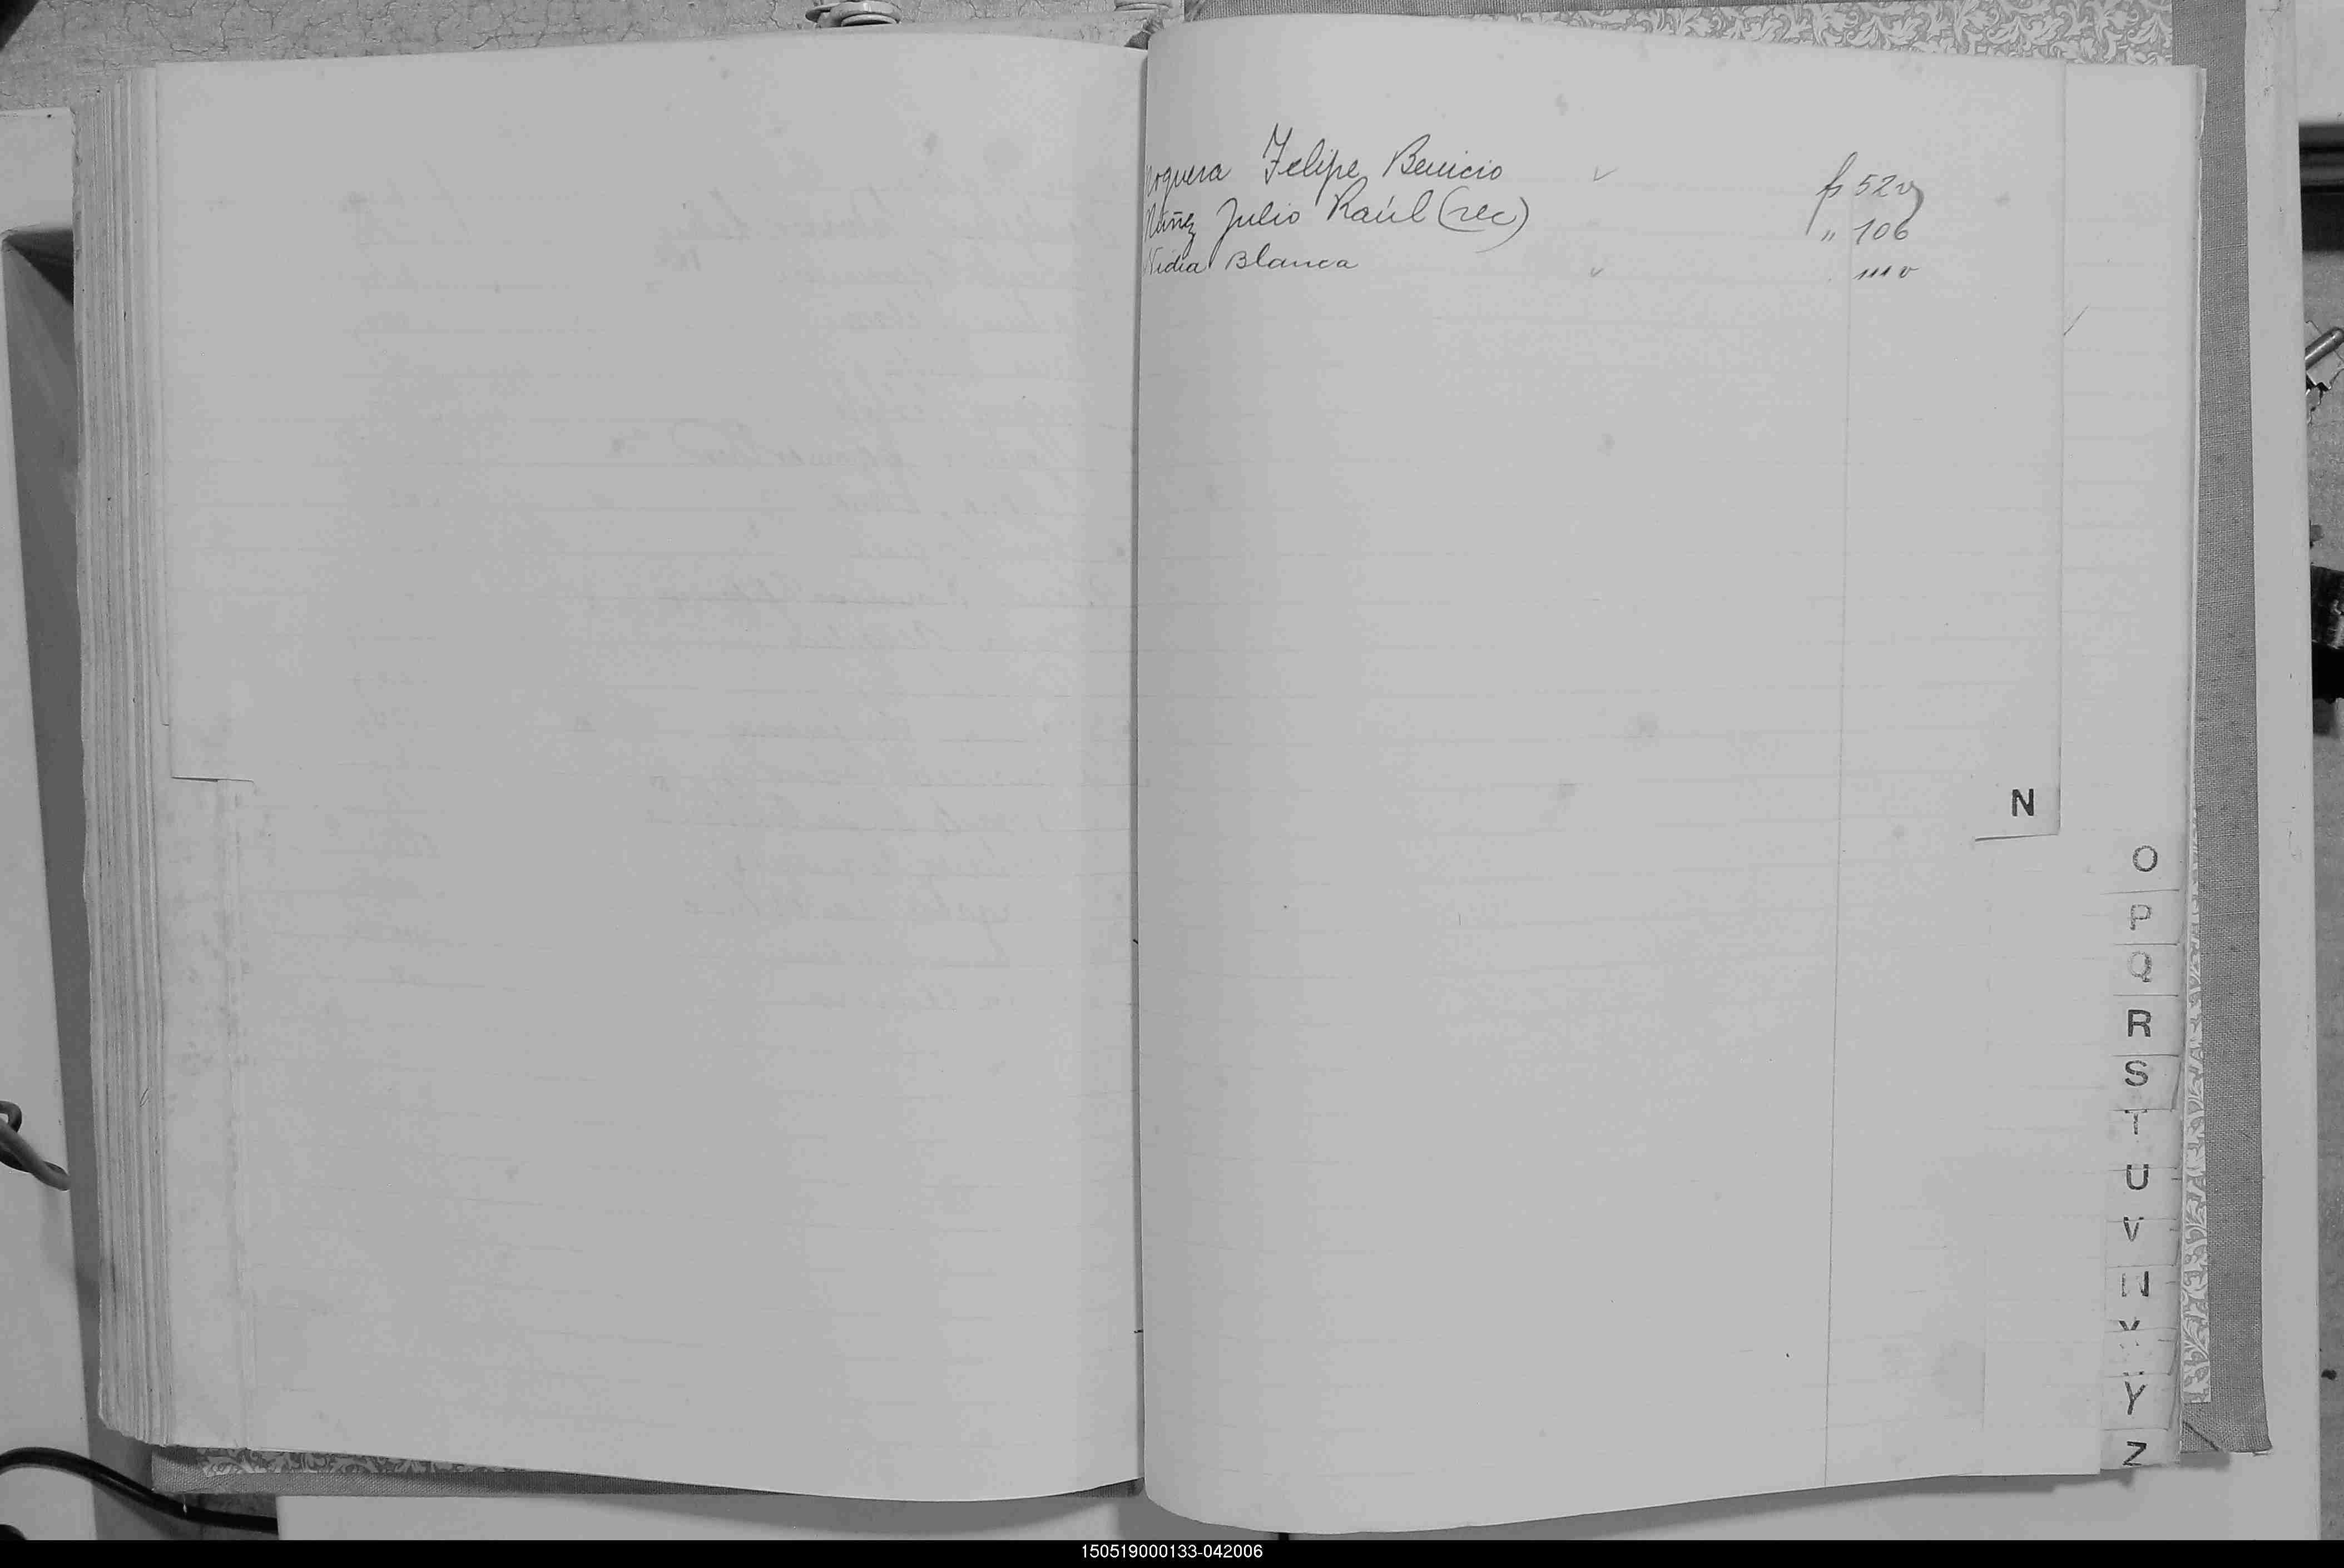 Noguera Felipe Benicio ✓ fs 52v
Núñez Julio Raúl (rec) " 106
Nidia Blanca ✓ 111 v
N
O
P
Q
R
S
T
U
V
W
X
Y
Z
150519000133-042006